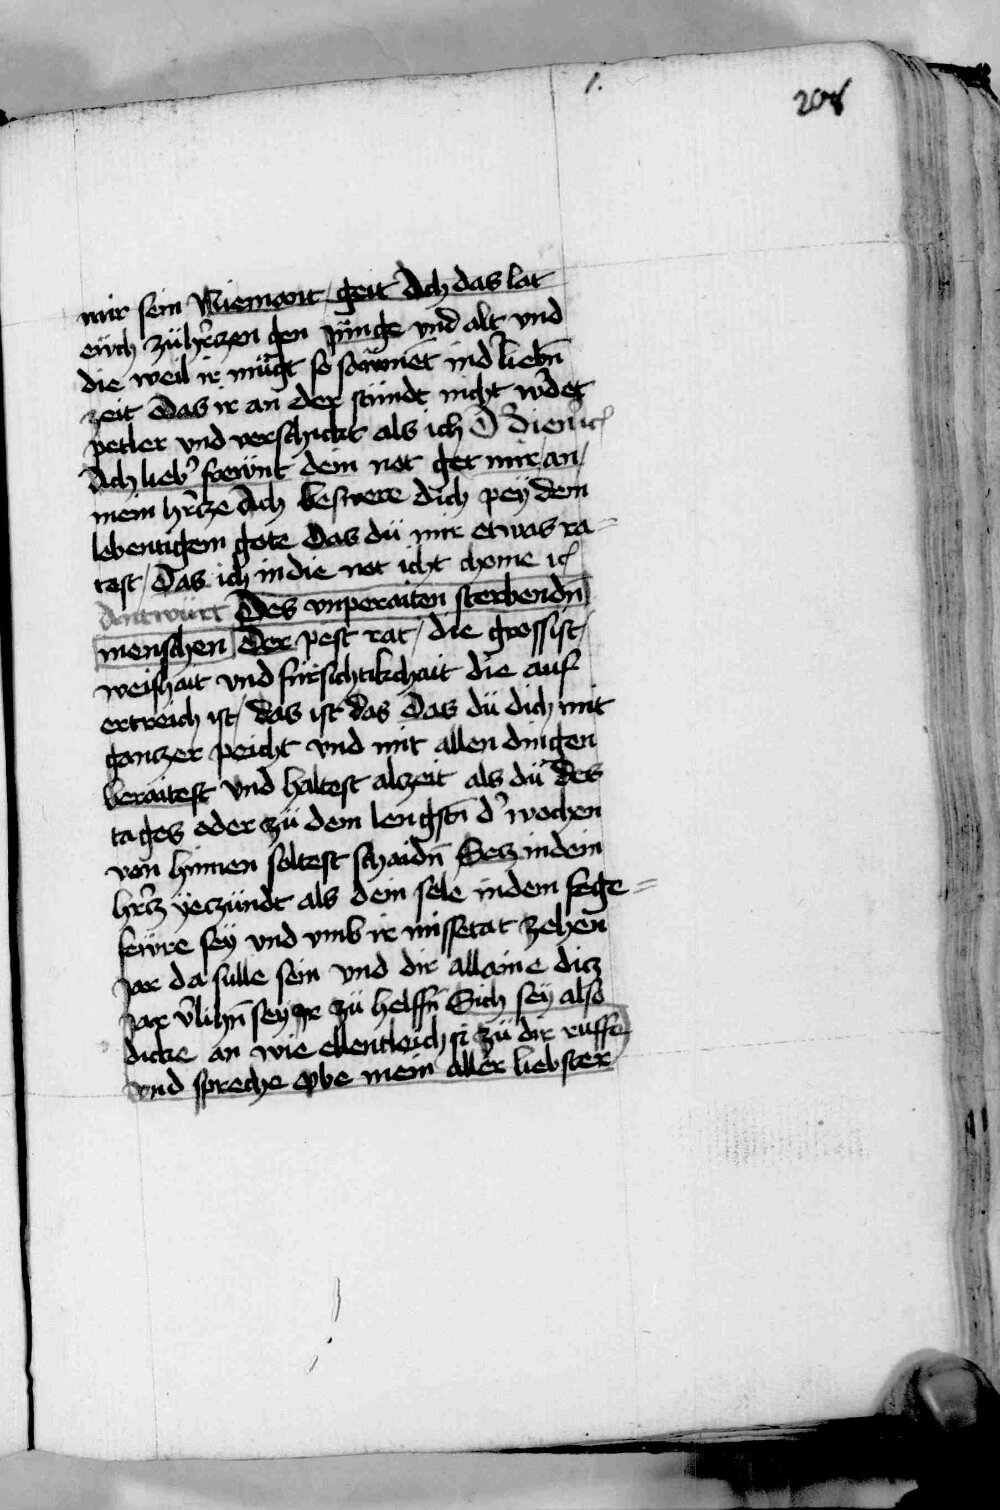 1.
208
mir sein Niemant / geit Ach das lat
ewch zü hr̄czen gen jünge vnd alt vnd
die weil ir mügt so säwmēt in d' liebn̄
zeit Das ir an der stündt nicht w'det
petler vnd verschickt als ich D' dien'
Ach lieb' frewnt dein not get mir / an /
mein hr̄cze Ach beswere dich pey dem
lebentigem gote Das dü mir etwas ra=
test / Das ich in die not icht chome
Antwürt Des vnperaiten sterbendn̄
menschen Der pest rat / die grossist /
weishait vnd fürsichtikchait die auf
ertreich ist / das ist das Das dü dich mit
ganczer peicht vnd mit allen dingen
beraitest vnd haltest alczeit als dü des
tages oder zü dem lengstn̄ d' wochen
von hinnen soltest schaidn̄ Secz in dein
hr̄cz yeczündt als dein sele in dem fege=
fewre sey vnd vmb ir missetat zehen
jar da sulle sein vnd dir allaine dicz
jar v'lihn̄ sey ir zü helffn̄ Sich sey also
dicke an wie ellentleich si zü dir ruffe
vnd spreche Owe mein aller liebster